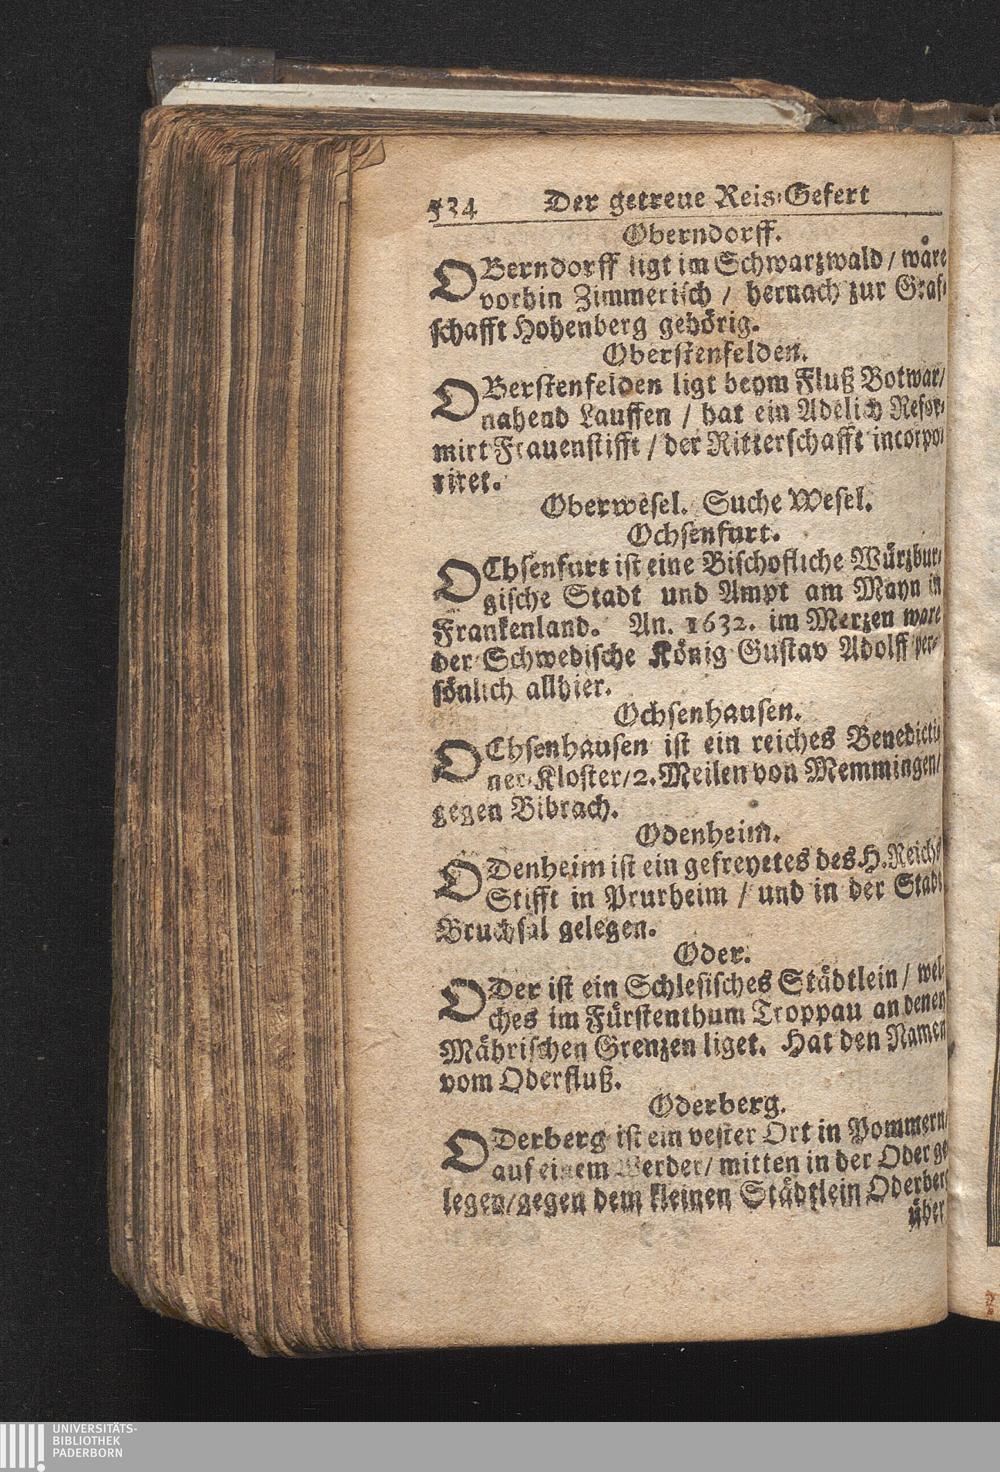 534 Der getreue Reis-Gefert
Oberndorff.
OBerndorff ligt im Schwarzwald / ware
vorhin Zimmerisch / hernach zur Graf-
schafft Hohenberg gehörig.
Oberstenfelden.
OBerstenfelden ligt beym Fluß Botwar/
nahend Lauffen / hat ein Adelich Refor-
mirt Frauenstifft / der Ritterschafft incorpo-
riret.
Oberwesel. Suche Wesel.
Ochsenfurt.
OChsenfurt ist eine Bischofliche Würzbur-
gische Stadt und Ampt am Mayn in
Frankenland. An. 1632. im Merzen ware
der Schwedische König Gustav Adolff per-
sönlich allhier.
Ochsenhausen.
OChsenhausen ist ein reiches Benedicti-
ner-Kloster/2. Meilen von Memmingen/
gegen Bibrach.
Odenheim.
ODenheim ist ein gefreyetes des H. Reichs
Stifft in Prurheim / und in der Stadt
Bruchsal gelegen.
Oder.
ODer ist ein Schlesisches Städtlein / wel-
ches im Fürstenthum Troppau an denen
Mährischen Grenzen liget. Hat den Namen
vom Oderfluß.
Oderberg.
ODerberg ist ein vester Ort in Pommern/
auf einem Werder/ mitten in der Oder ge-
legen/gegen dem kleinen Städtlein Oderberg
über
UNIVERSITÄTS-
BIBLIOTHEK
PADERBORN